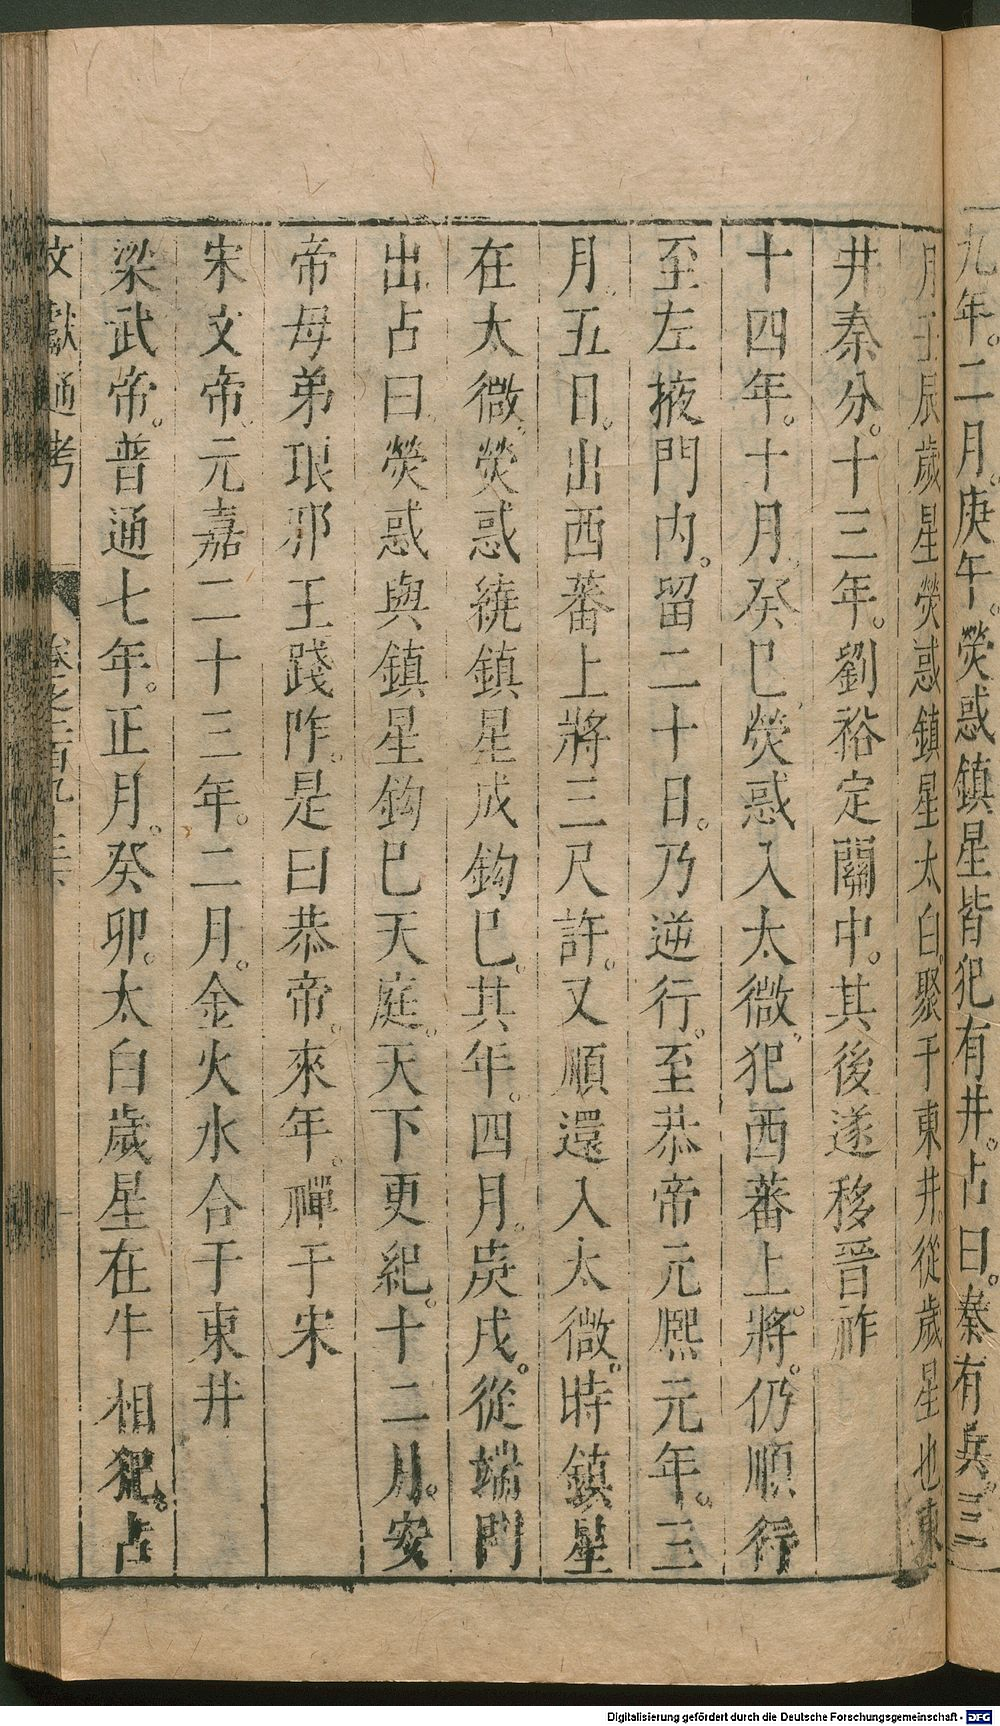 九年。二月。庚午。熒惑鎮星皆犯有井。占曰。秦有兵。三
月壬辰歲星熒惑鎮星太白聚于東井。從歲星也東
井。秦分。十三年。劉裕定關中。其後遂移晉祚
十四年。十月。癸巳熒惑入太微。犯西蕃上將。仍順行
至左掖門內。留二十日。乃逆行。至恭帝元熙元年。三
月。五日。出西蕃上將三尺許。又順還入太微。時鎮星
在太微。熒惑繞鎮星成鉤巳。其年。四月。庚戌。從端門
出占曰。熒惑與鎮星鉤巳天庭。天下更紀。十二月。安
帝母弟琅邪王踐阼。是曰恭帝。來年。禪于宋
宋文帝元嘉二十三年。二月。金火水合于東井
梁武帝。普通七年。正月。癸卯。太白歲星在牛相犯。占
文獻通考 卷之二百九十三
Digitalisierung gefördert durch die Deutsche Forschungsgemeinschaft - DFG